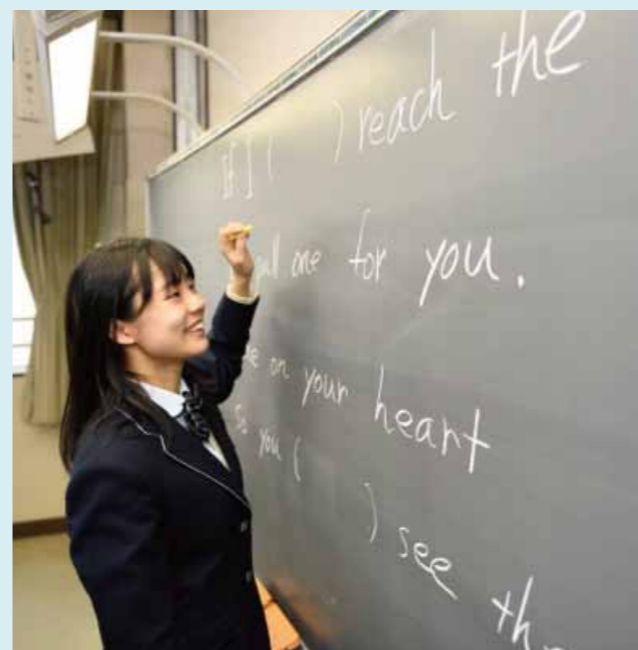 If I (      ) reach the
all one for you.
on your heart
So you (      ) see